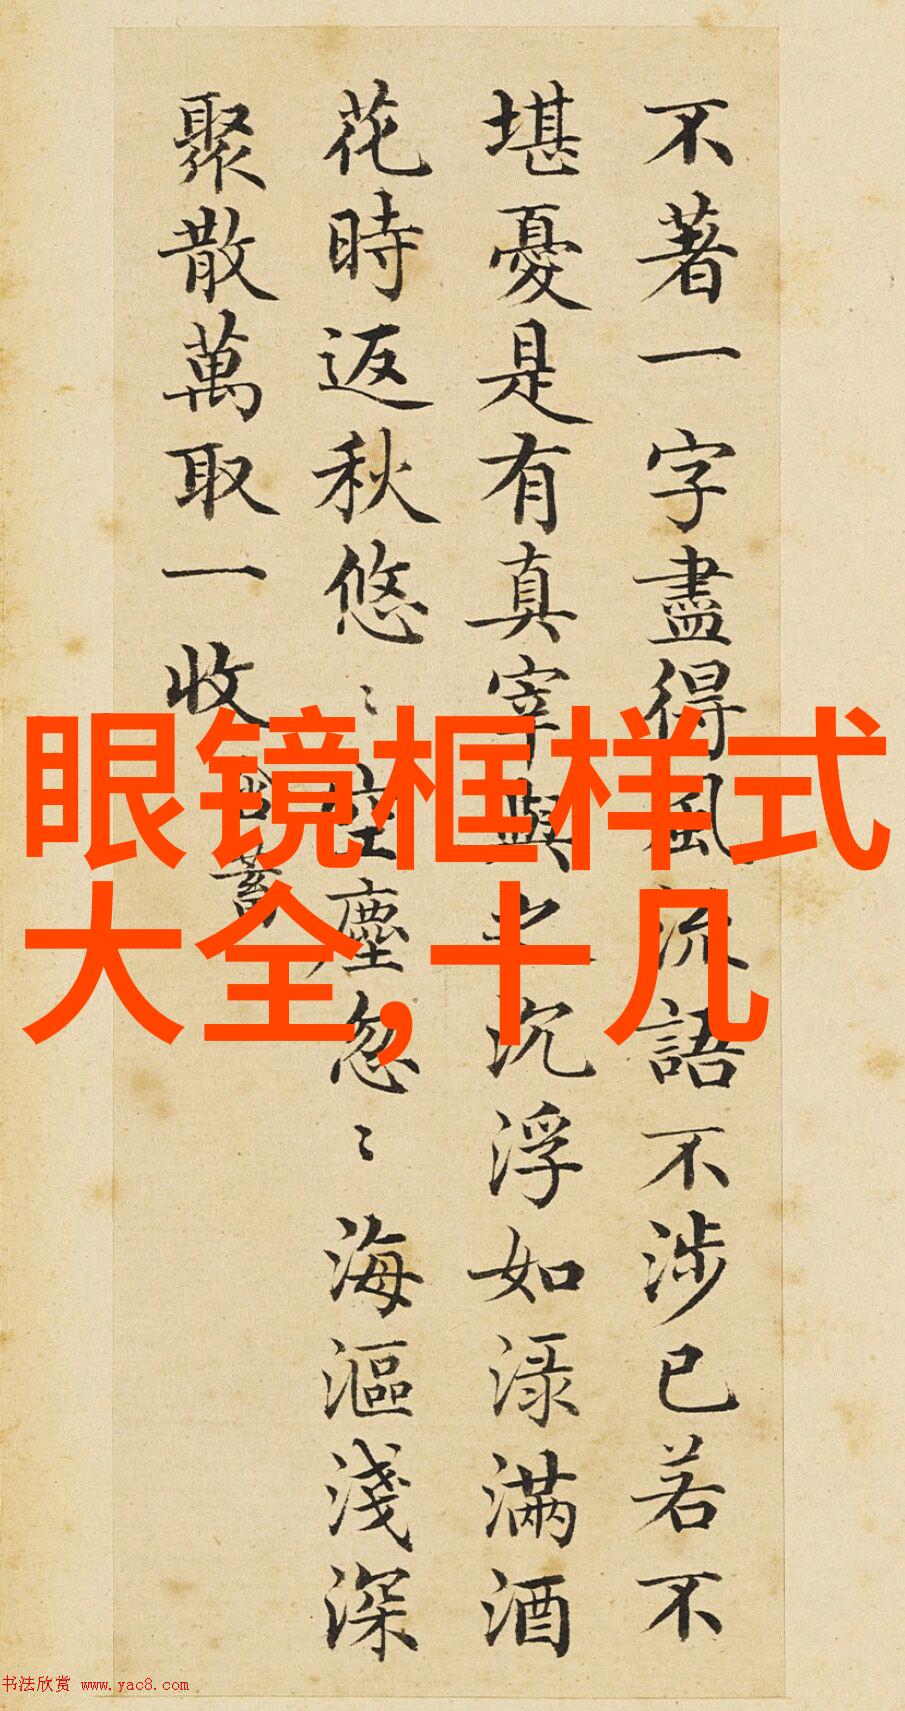 不著一字盡得風流語不涉已若不
堪憂是有真宰與之沉浮如渌滿酒
花時返秋悠〻空塵忽〻海漚淺深
聚散萬取一收
蓄
眼镜框样式
大全,十几
书法欣赏 www.yac8.com